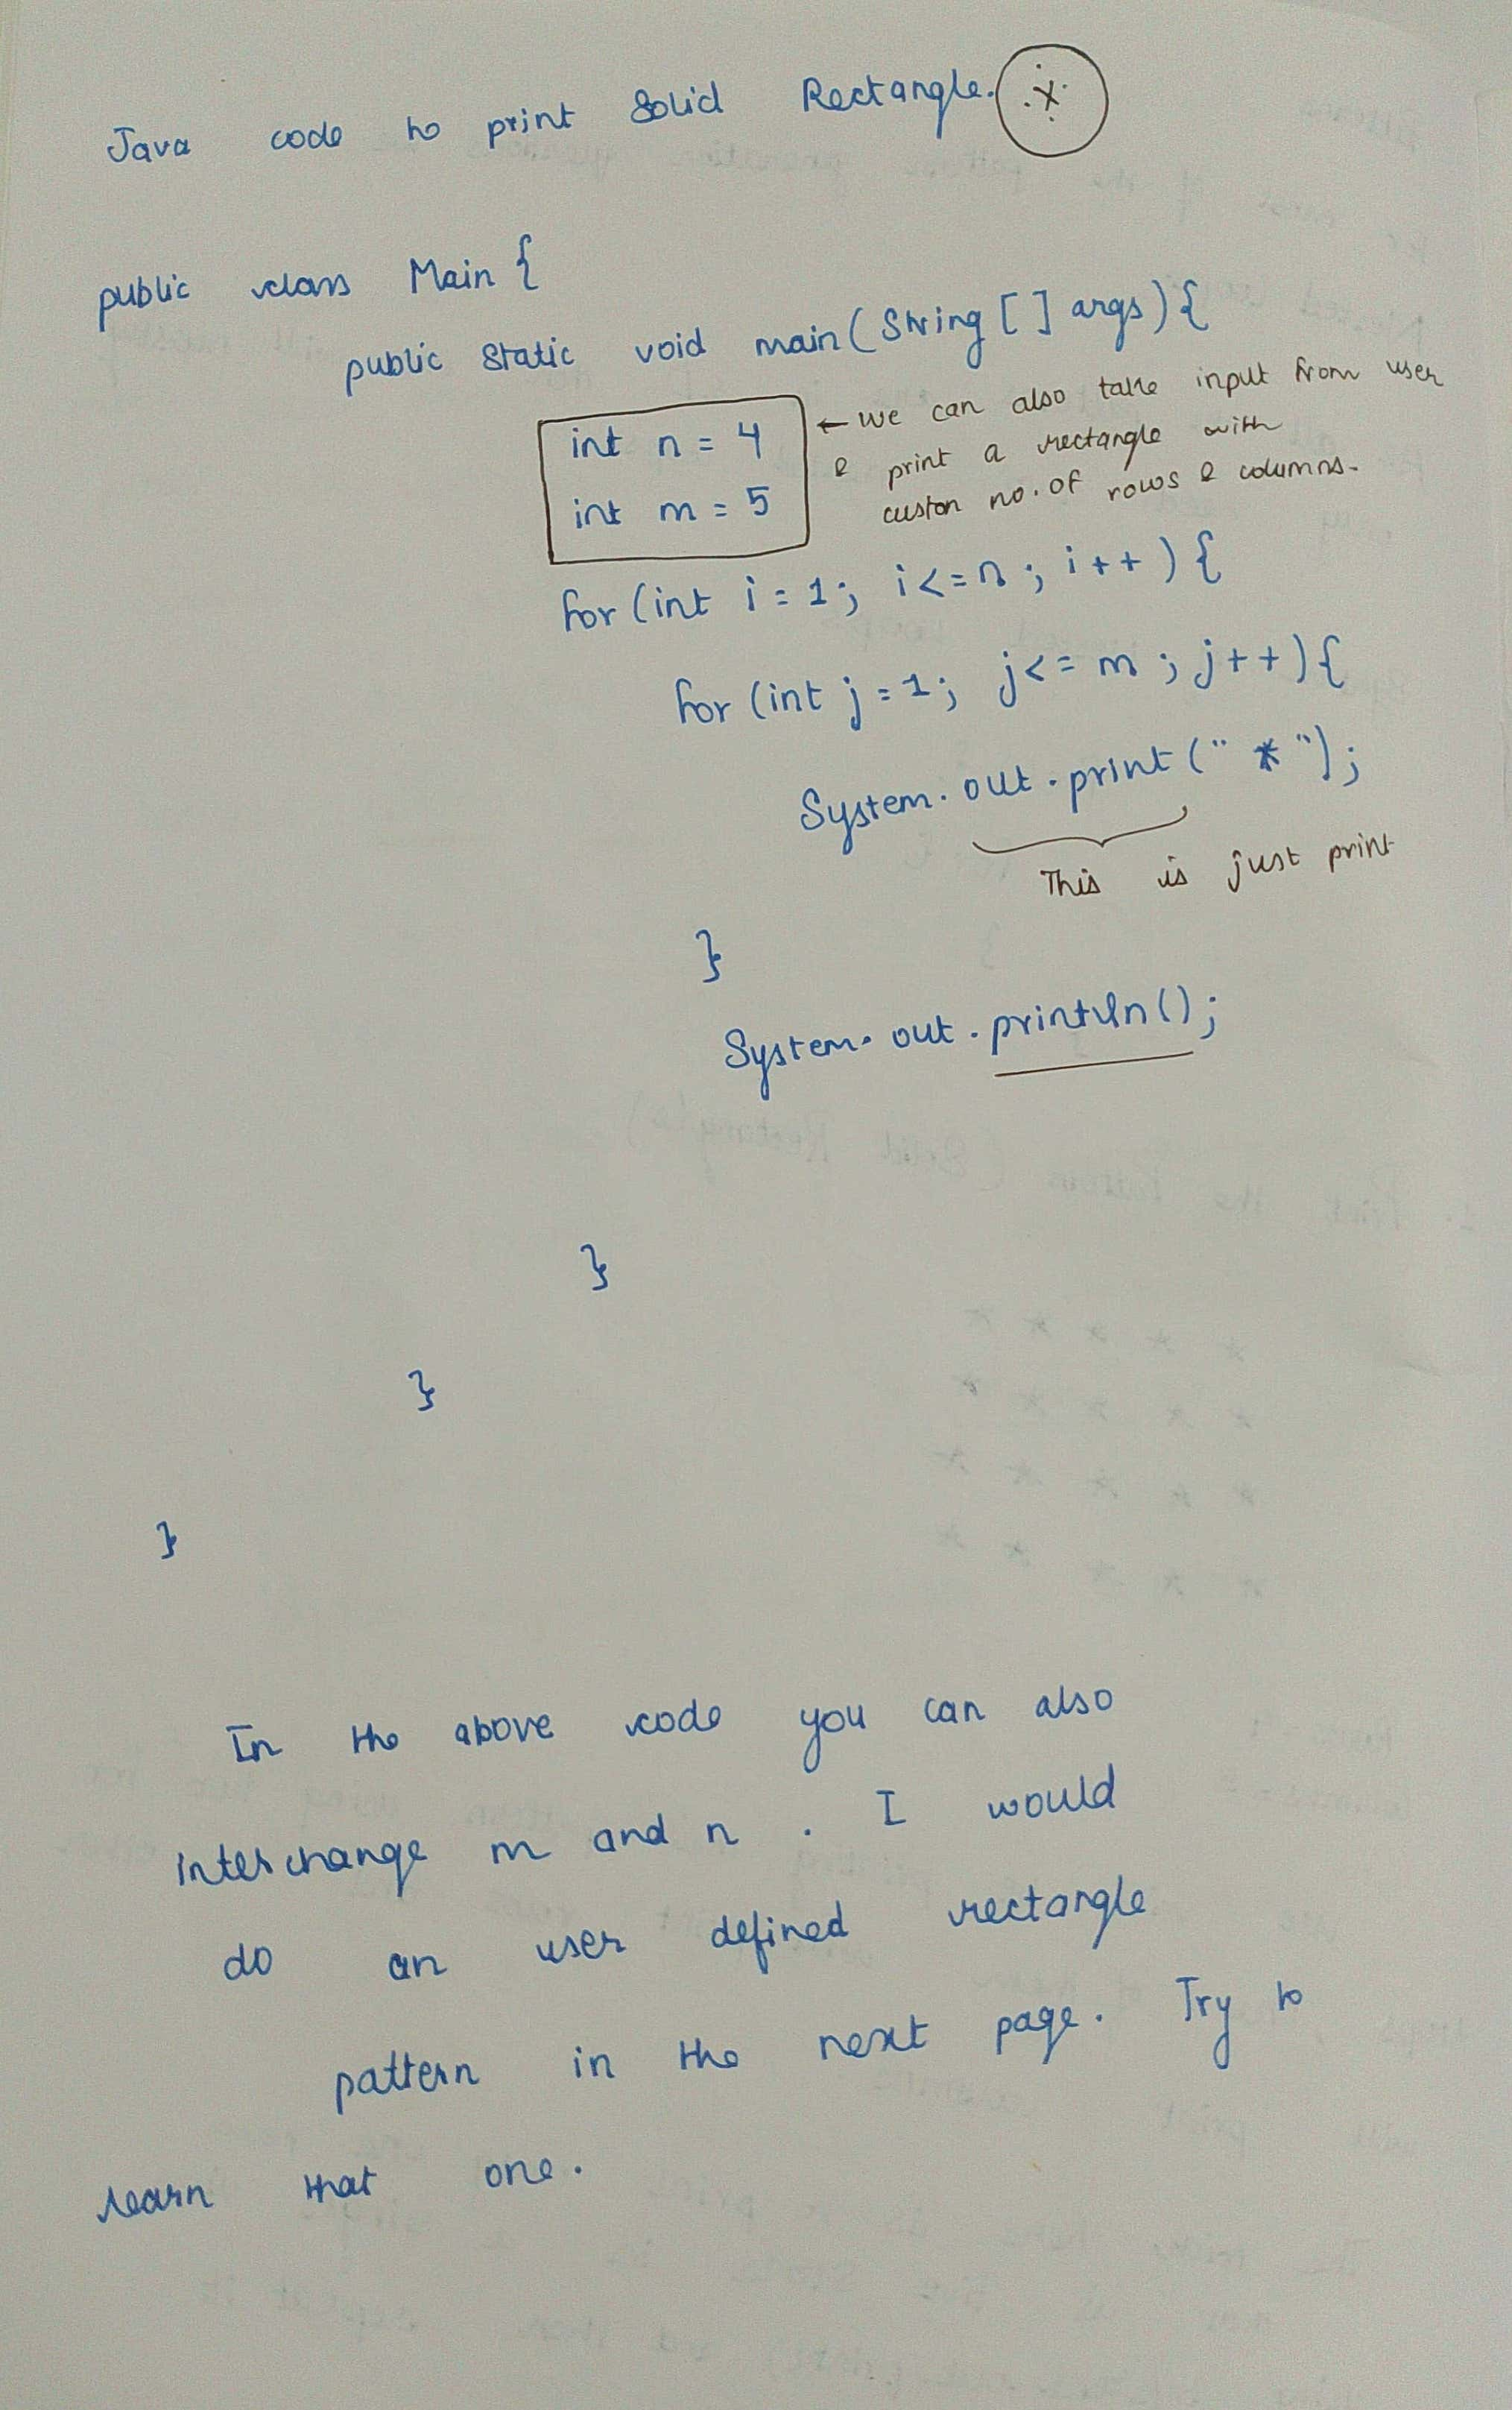 Java code to print Solid Rectangle.
public class Main {
public static void main(String [] args){
int n = 4
int m = 5
← we can also take input from user
& print a rectangle with
custon no. of rows & columns.
for (int i = 1; i <= n ; i++ ) {
for (int j = 1; j <= m ; j++){
System.out.print(" * ");
This is just print
}
System.out.println();
}
}
}
In the above code you can also
interchange m and n . I would
do an user defined rectangle
pattern in the next page. Try to
learn that one.